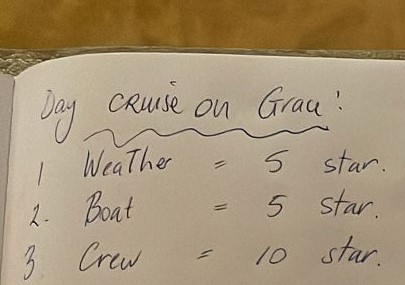 Day cruise on Grace!
1 Weather = 5 star.
2. Boat = 5 star.
3 Crew = 10 star.